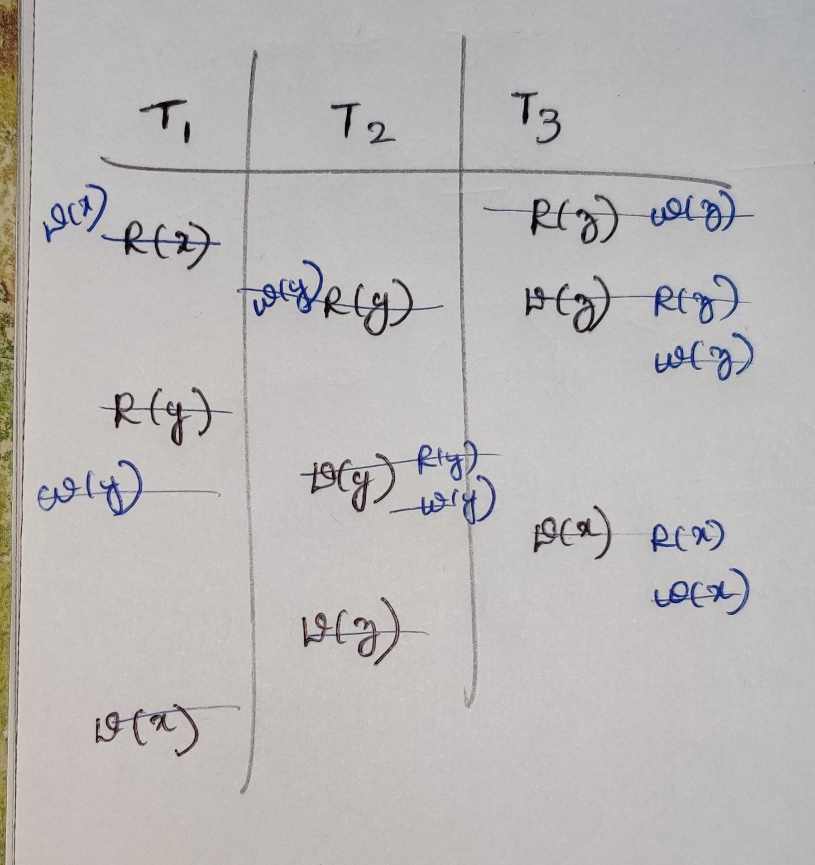 T1 T2 T3
W(x) R(x) R(z) W(z)
W(y) R(y) W(z) R(z)
W(z)
R(y)
W(y) W(y) R(y)
W(y)
W(x) R(x)
W(x)
W(z)
W(x)